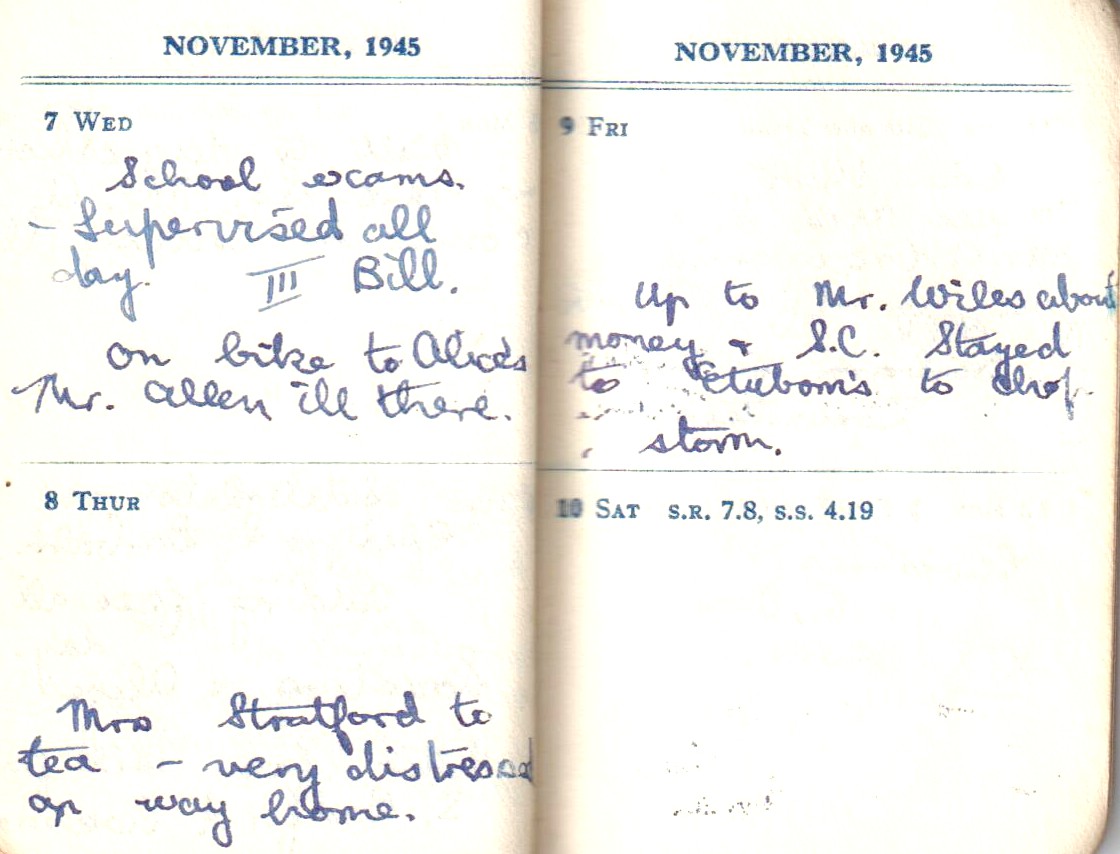 NOVEMBER, 1945
7 WED
School exams.
- Supervised all
day. III Bill.
on bike to Alice's
Mr. Allen ill there.
8 THUR
Mrs Stratford to
tea - very distressed
on way home.
NOVEMBER, 1945
9 FRI
Up to Mr. Wiles about
money & S.C. Stayed
to to
storm.
10 SAT S.R. 7.8, S.S. 4.19